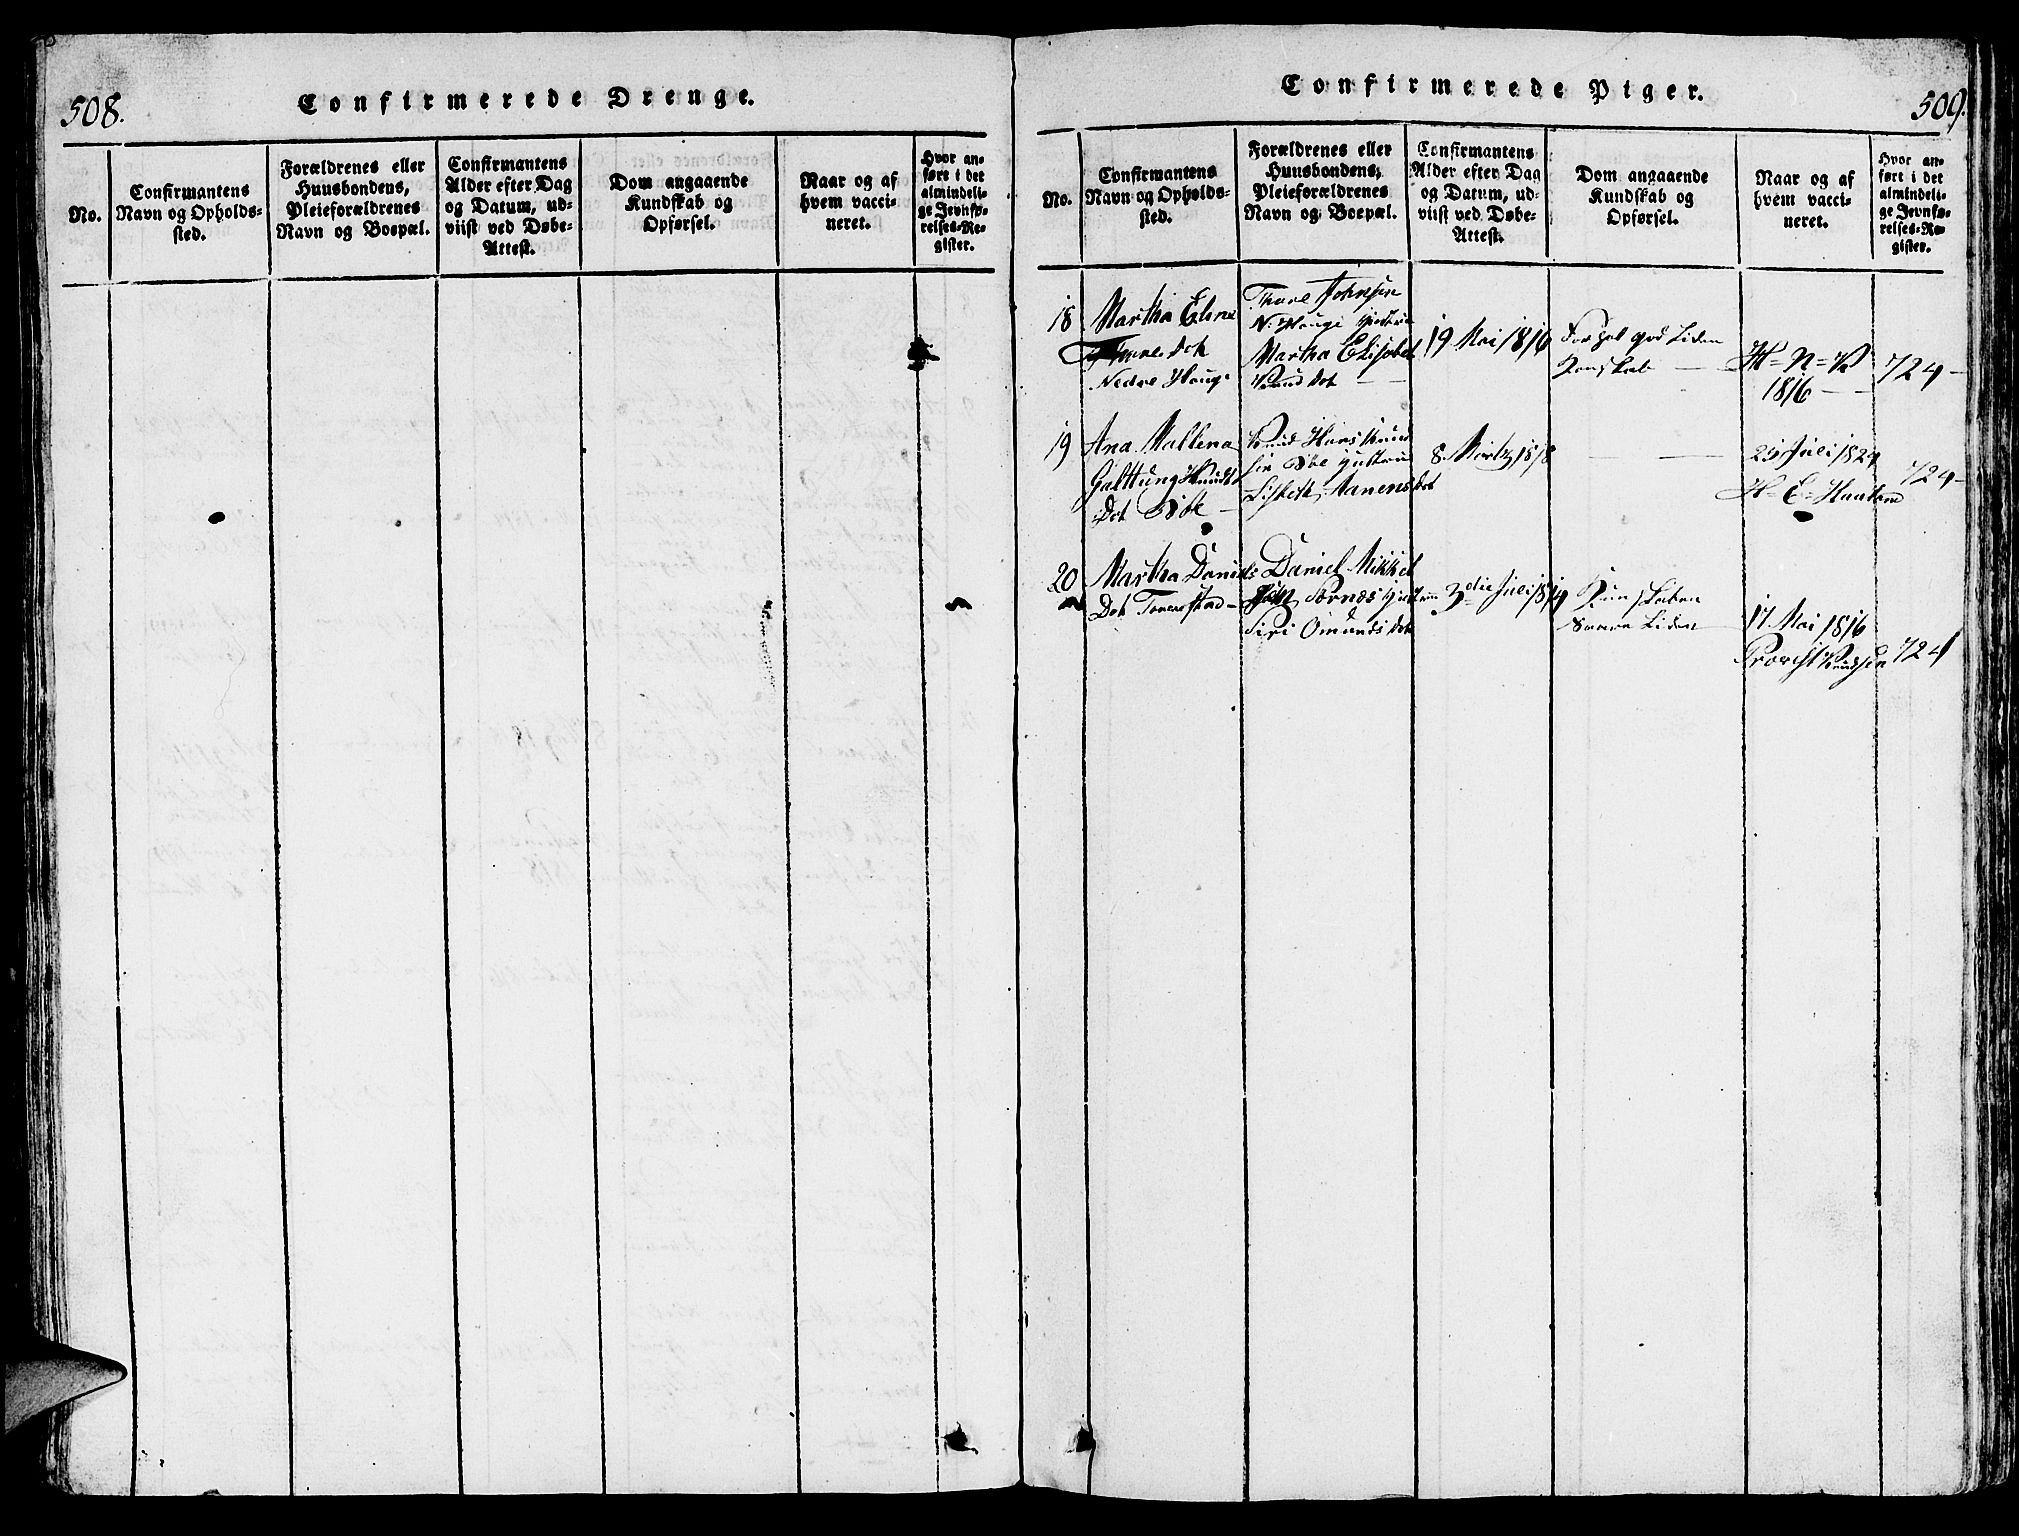 508.
Confirmerede Drenge.
No.
Confirmantens
Navn og Opholds-
sted.
Forældrenes eller
Huusbondens,
Pleieforældrenes
Navn og Boepæl.
Confirmantens
Alder efter Dag
og Datum, ud-
viist ved Døbe-
Attest.
Dom angaaende
Kundskab og
Opførsel.
Naar og af
hvem vacci-
neret.
Hvor an-
ført i det
almindeli-
ge Jevnfø-
relses-Re-
gister.
Confirmerede Piger.
509.
No.
Confirmantens
Navn og Opholds-
sted.
Forældrenes eller
Huusbondens,
Pleieforældrenes
Navn og Boepæl.
Confirmantens
Alder efter Dag
og Datum, ud-
viist ved Døbe-
Attest.
Dom angaaende
Kundskab og
Opførsel.
Naar og af
hvem vacci-
neret.
Hvor an-
ført i det
almindeli-
ge Jevnfø-
relses-Re-
gister.
18
Martha Eline
Thore Dot
Nedre Houge
Thore Johnsen
N. Houge Hustrue
Martha Elisabet
Knud Dot
19 Mai 1816
god Liden
Kunskab
H=N=K
1816
724
19
Ana Mallena
Galttung Knuds
Dot Bøe
Knud Hans Knud
sen Bøe Hustrue
Lisbeth Aanens Dot
8. Martz 1818
25 Juli 1824
H=E=Houtand
724
20
Martha Daniels
Dot
Daniel Mikkel
Sørnes Hustrue
Siri Omunds Dot
3die Juli 1814
Kunskaben
Liden
17 Mai 1816
Provst Knudsen
724